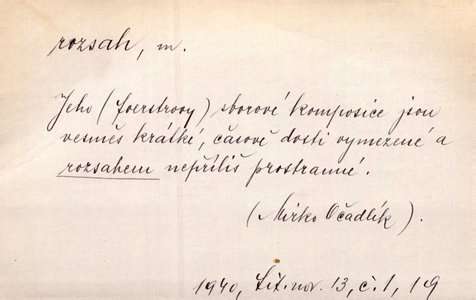 rozsah, m.
Jeho (foerstrovy) sborové komposice jsou
vesměs krátké, časově dosti vymezené a
rozsahem nepříliš prostranné.
(Mirko Očadlík).
1940, Lit. nov. 13, č. 1, 19